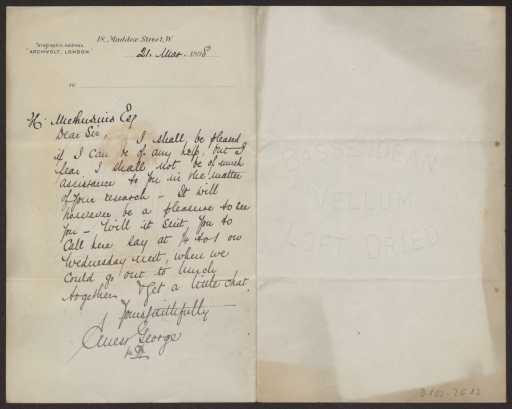 18, Maddox Street, W.
Telegraphic Address,
"ARCHIVOLT, LONDON"
21. Mar. 1898
To
H. Muthesius Esq
Dear Sir,
I shall be pleased
if I can be of any help, but I
fear I shall not be of much
assistance to you in the matter
of your research – It will
however be a pleasure to see
you – Will it suit you to
call here say at 1/4 to 1 on
Wednesday next, when we
could go out to lunch
together & get a little chat.
Yours faithfully
Ernest George
VELLUM